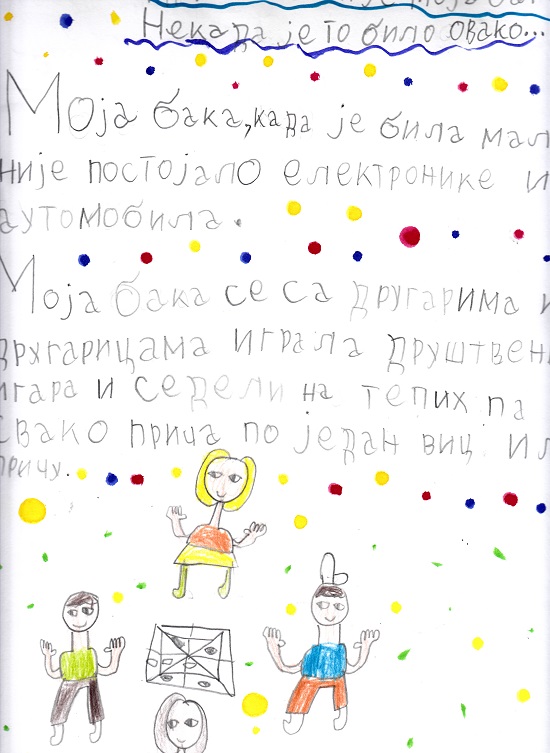 Некада је то било овако...
Моја бака, када је била мал
није постојало електронике и
аутомобила.
Моја бака се са другарима и
другарицама играла друштвен
игара и седели на тепих па
свако прича по један виц ил
причу.